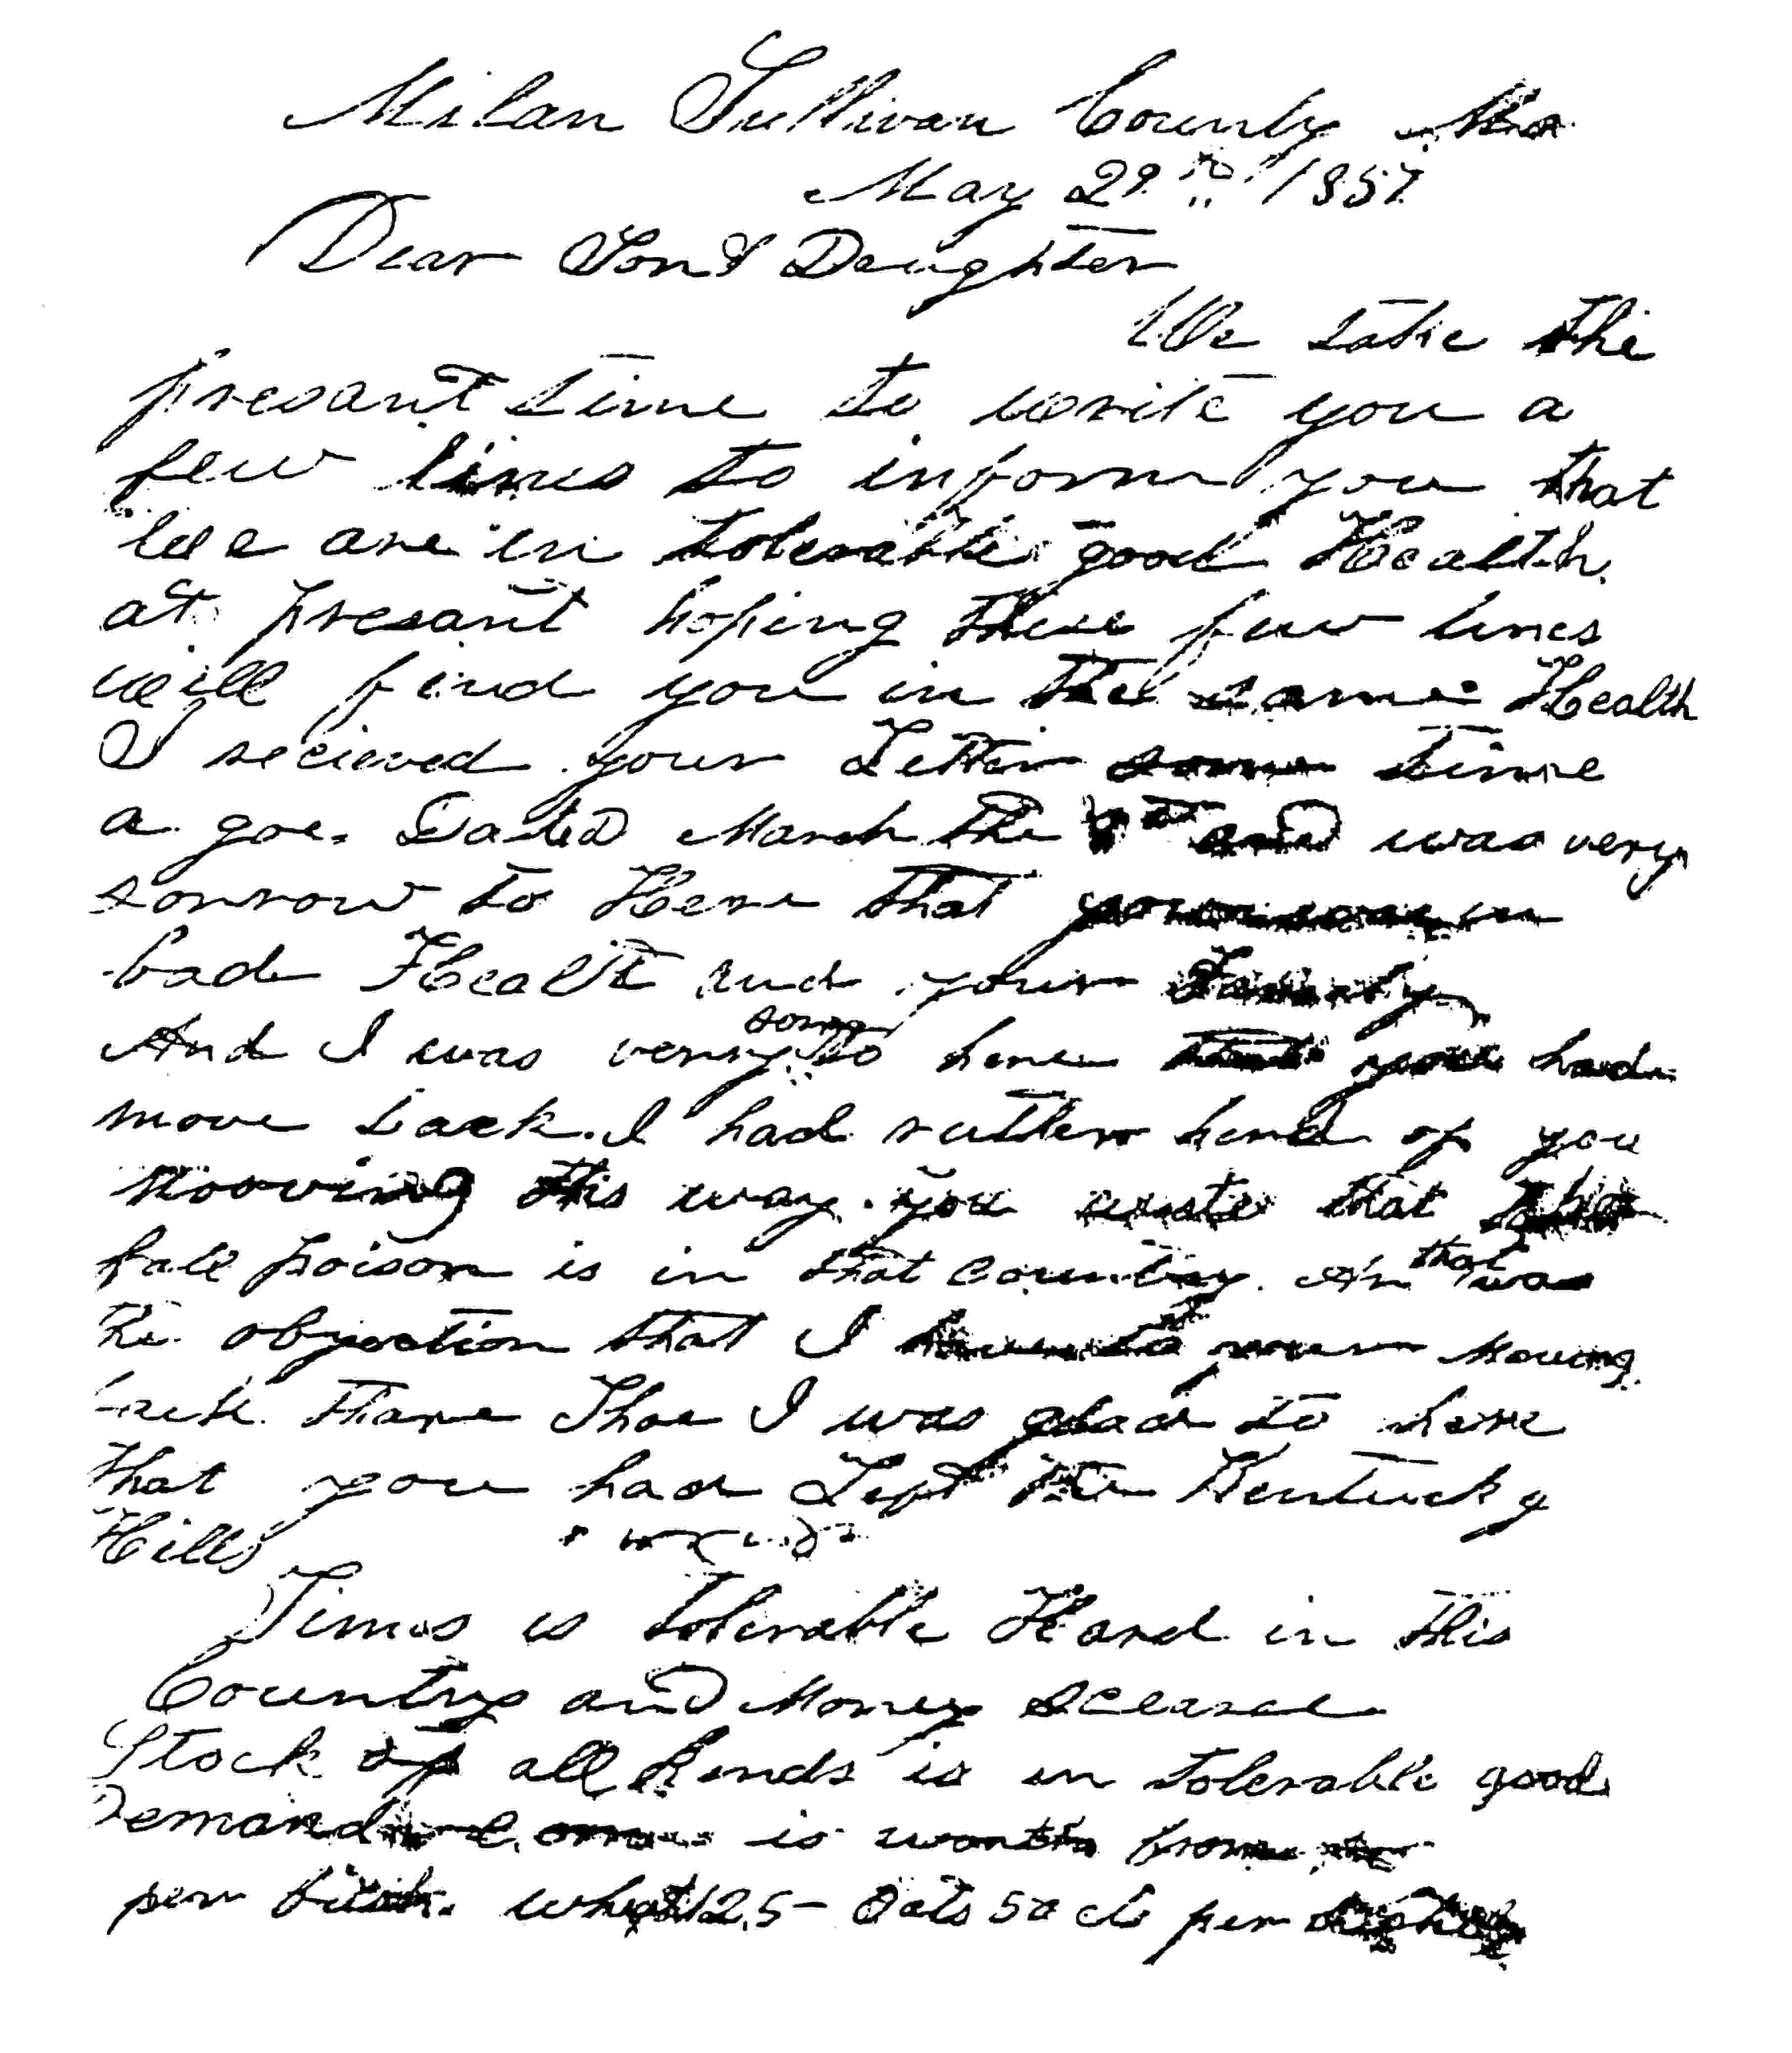 Milan Sullivan County Mo
May 29th 1857
Dear Son & Daughter
We take the
presant time to write you a
few lines to inform you that
we are in tolerable good Health
at presant hoping these few lines
will find you in the same Health
I recieved your Letter some time
a goe. Dated March the and was very
sorrow to Here that your was in
bad Healt and your Family
And I was very sorry to here that you had
move back. I had ruther herd of you
mooving this way. you wrote that
fall poison is in that country. An that was
the objection that I have to your moving
back thare Thoe I was glad to here
that you had Left the Kentucky
Hills
Times is tolerable Hard in this
Country and Money Scearce
Stock of all Kinds is in tolerable good
Demand Corn is worth from
per bush. wheat 125 - Oats 50 cts per